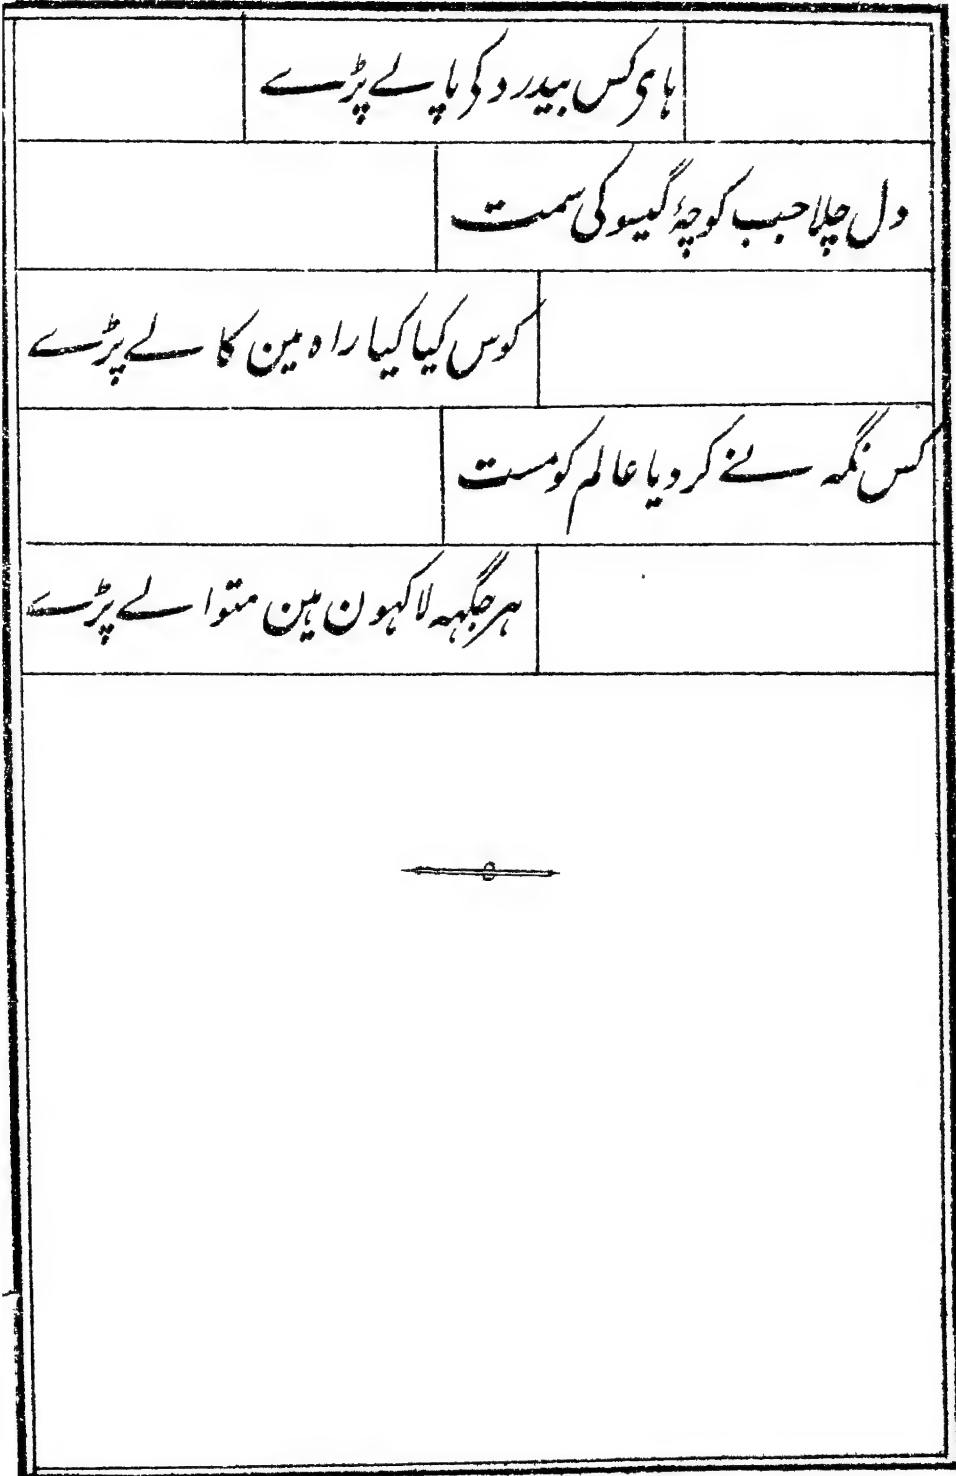 ہای کس بیدرد کی پالے پڑے
دل چلا جب کوچۂ گیسو کی سمت
کوس کیا کیا راہ مین کالے پڑے
کس نگہ نے کر دیا عالم کو مست
ہر جگہہ لاکہون ہین متوالے پڑے